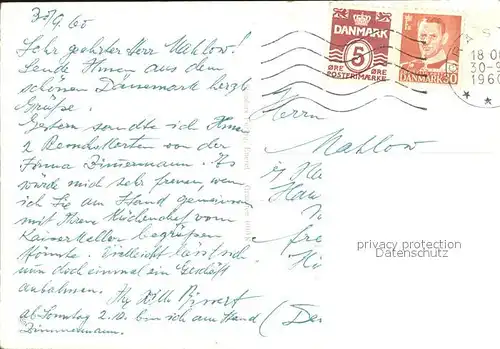 30/9. 60
Sehr geehrter Herr Mahlow!
Sende Ihnen aus dem
schönen Dänemark herzl.
Grüße.
Gestern sandte ich Ihnen
2 von der
Firma Dimmermann. Es
würde mich sehr freuen, wenn
ich Sie am Stand gemeinsam
mit Ihrem Küchenchef vom
Kaiserkeller begrüßen
könnte. Vielleicht lässt sich
nun doch einmal ein Geschäft
anbahnen. Ihr Willi
ab Sonntag 2.10. bin ich am Stand
Dimmermann.
DANMARK
5
ØRE ØRE
POSTFRIMÆRKE
DANMARK 30
18 00
30-9
1960
* *
Herrn
Mahlow
privacy protection
Datenschutz